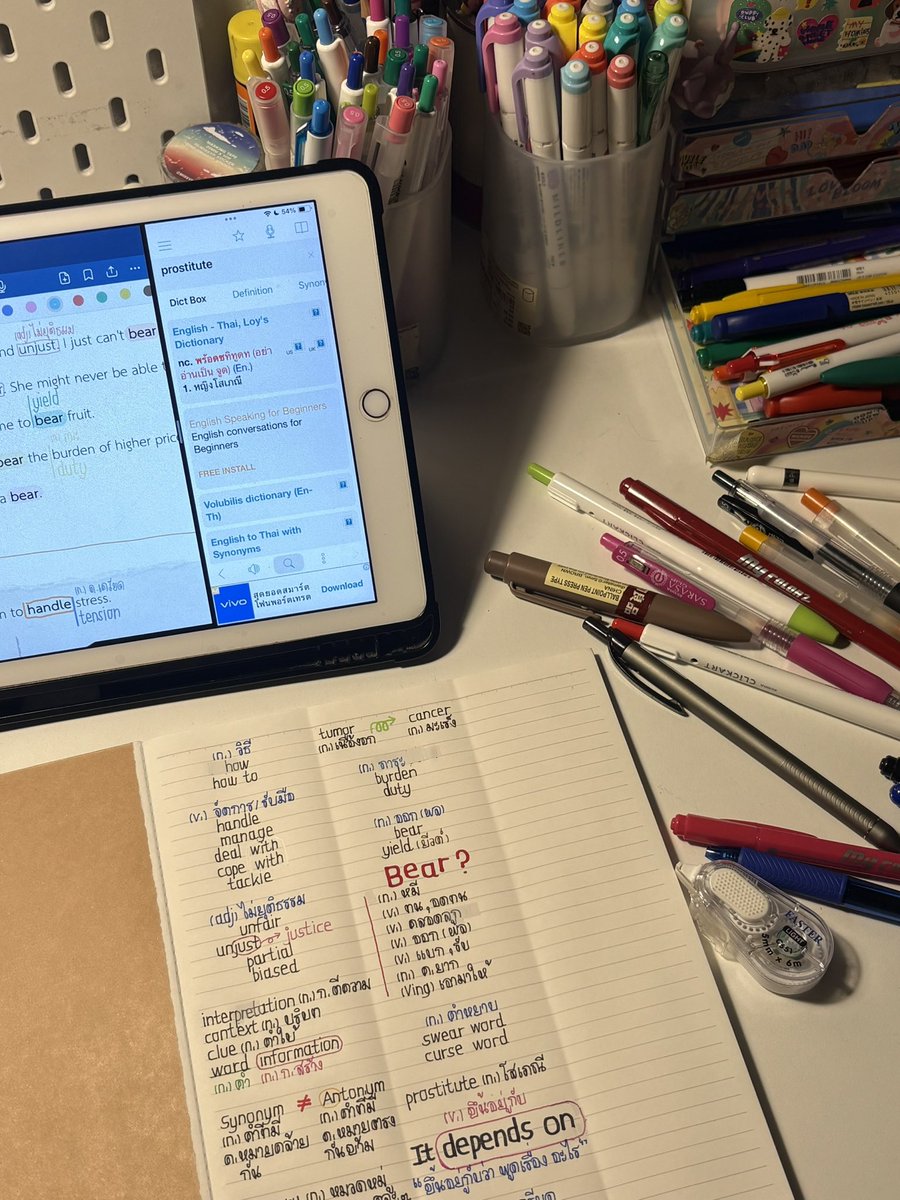 54%
prostitute
Dict Box Definition Synon
English - Thai, Loy's
Dictionary
US UK
nc. พร้อสซทิทูดท (อย่า
อ่านเป็น จูด) (En.)
1. หญิงโสเภณี
English Speaking for Beginners
English conversations for
Beginners
FREE INSTALL
Volubilis dictionary (En-
Th)
English to Thai with
Synonyms
vivo
สุดยอดสมาร์ต
โฟนพอร์ตเทรต
Download
(adj) ไม่ยุติธรรม
nd unjust. I just can't bear
She might never be able t
yield
me to bear fruit.
bear the burden of higher price
duty
a bear.
n to handle stress.
tension
(n.) วิธี
how
how to
(v.) จัดการ/รับมือ
handle
manage
deal with
cope with
tackle
(adj) ไม่ยุติธรรม
unfair
unjust justice
partial
biased
interpretation (n.) ก.ตีความ
context (n.) บริบท
clue (n.) คำใบ้
word information
(n.) คำ (n.) ก.สร้าง
Synonym ≠ Antonym
(n.) คำที่มี (n.) คำที่มี
ค.หมายคล้าย ค.หมายตรง
กัน กันข้าม
(n.) หมวดหมู่
tumor cancer
(n.) เนื้องอก (n.) มะเร็ง
(n.) ภาระ
burden
duty
(n.) ออก (ผล)
bear
yield (ยีลด์)
Bear?
(n.) หมี
(v.) ทน, อดทน
(v.) คลอดลูก
(v.) ออก (ผล)
(v.) แบก, รับ
(n.) ค.ยาก
(Ving) เอามาให้
(n.) คำหยาบ
swear word
curse word
prostitute (n.) โสเภณี
(v.) ขึ้นอยู่กับ
It depends on
"ขึ้นอยู่กับว่า พูดเรื่อง อะไร"
MILDLINER
LOVBLOOM
CLICKART
BALLPOINT PEN PRESS TYPE
CHINA
0.5
SAKASA
CLICKART
EASTER
5mm x 6m